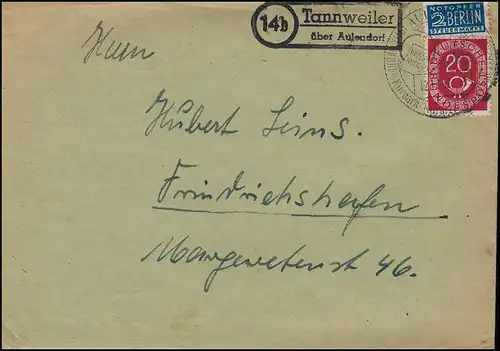 14b Tannweiler
über Aulendorf
NOTOPFER
2 BERLIN
STEUERMARKE
DEUTSCHE
20
BUNDESPOST
Herrn
Hubert Seins.
Friedrichshafen
Margeretenst 46.